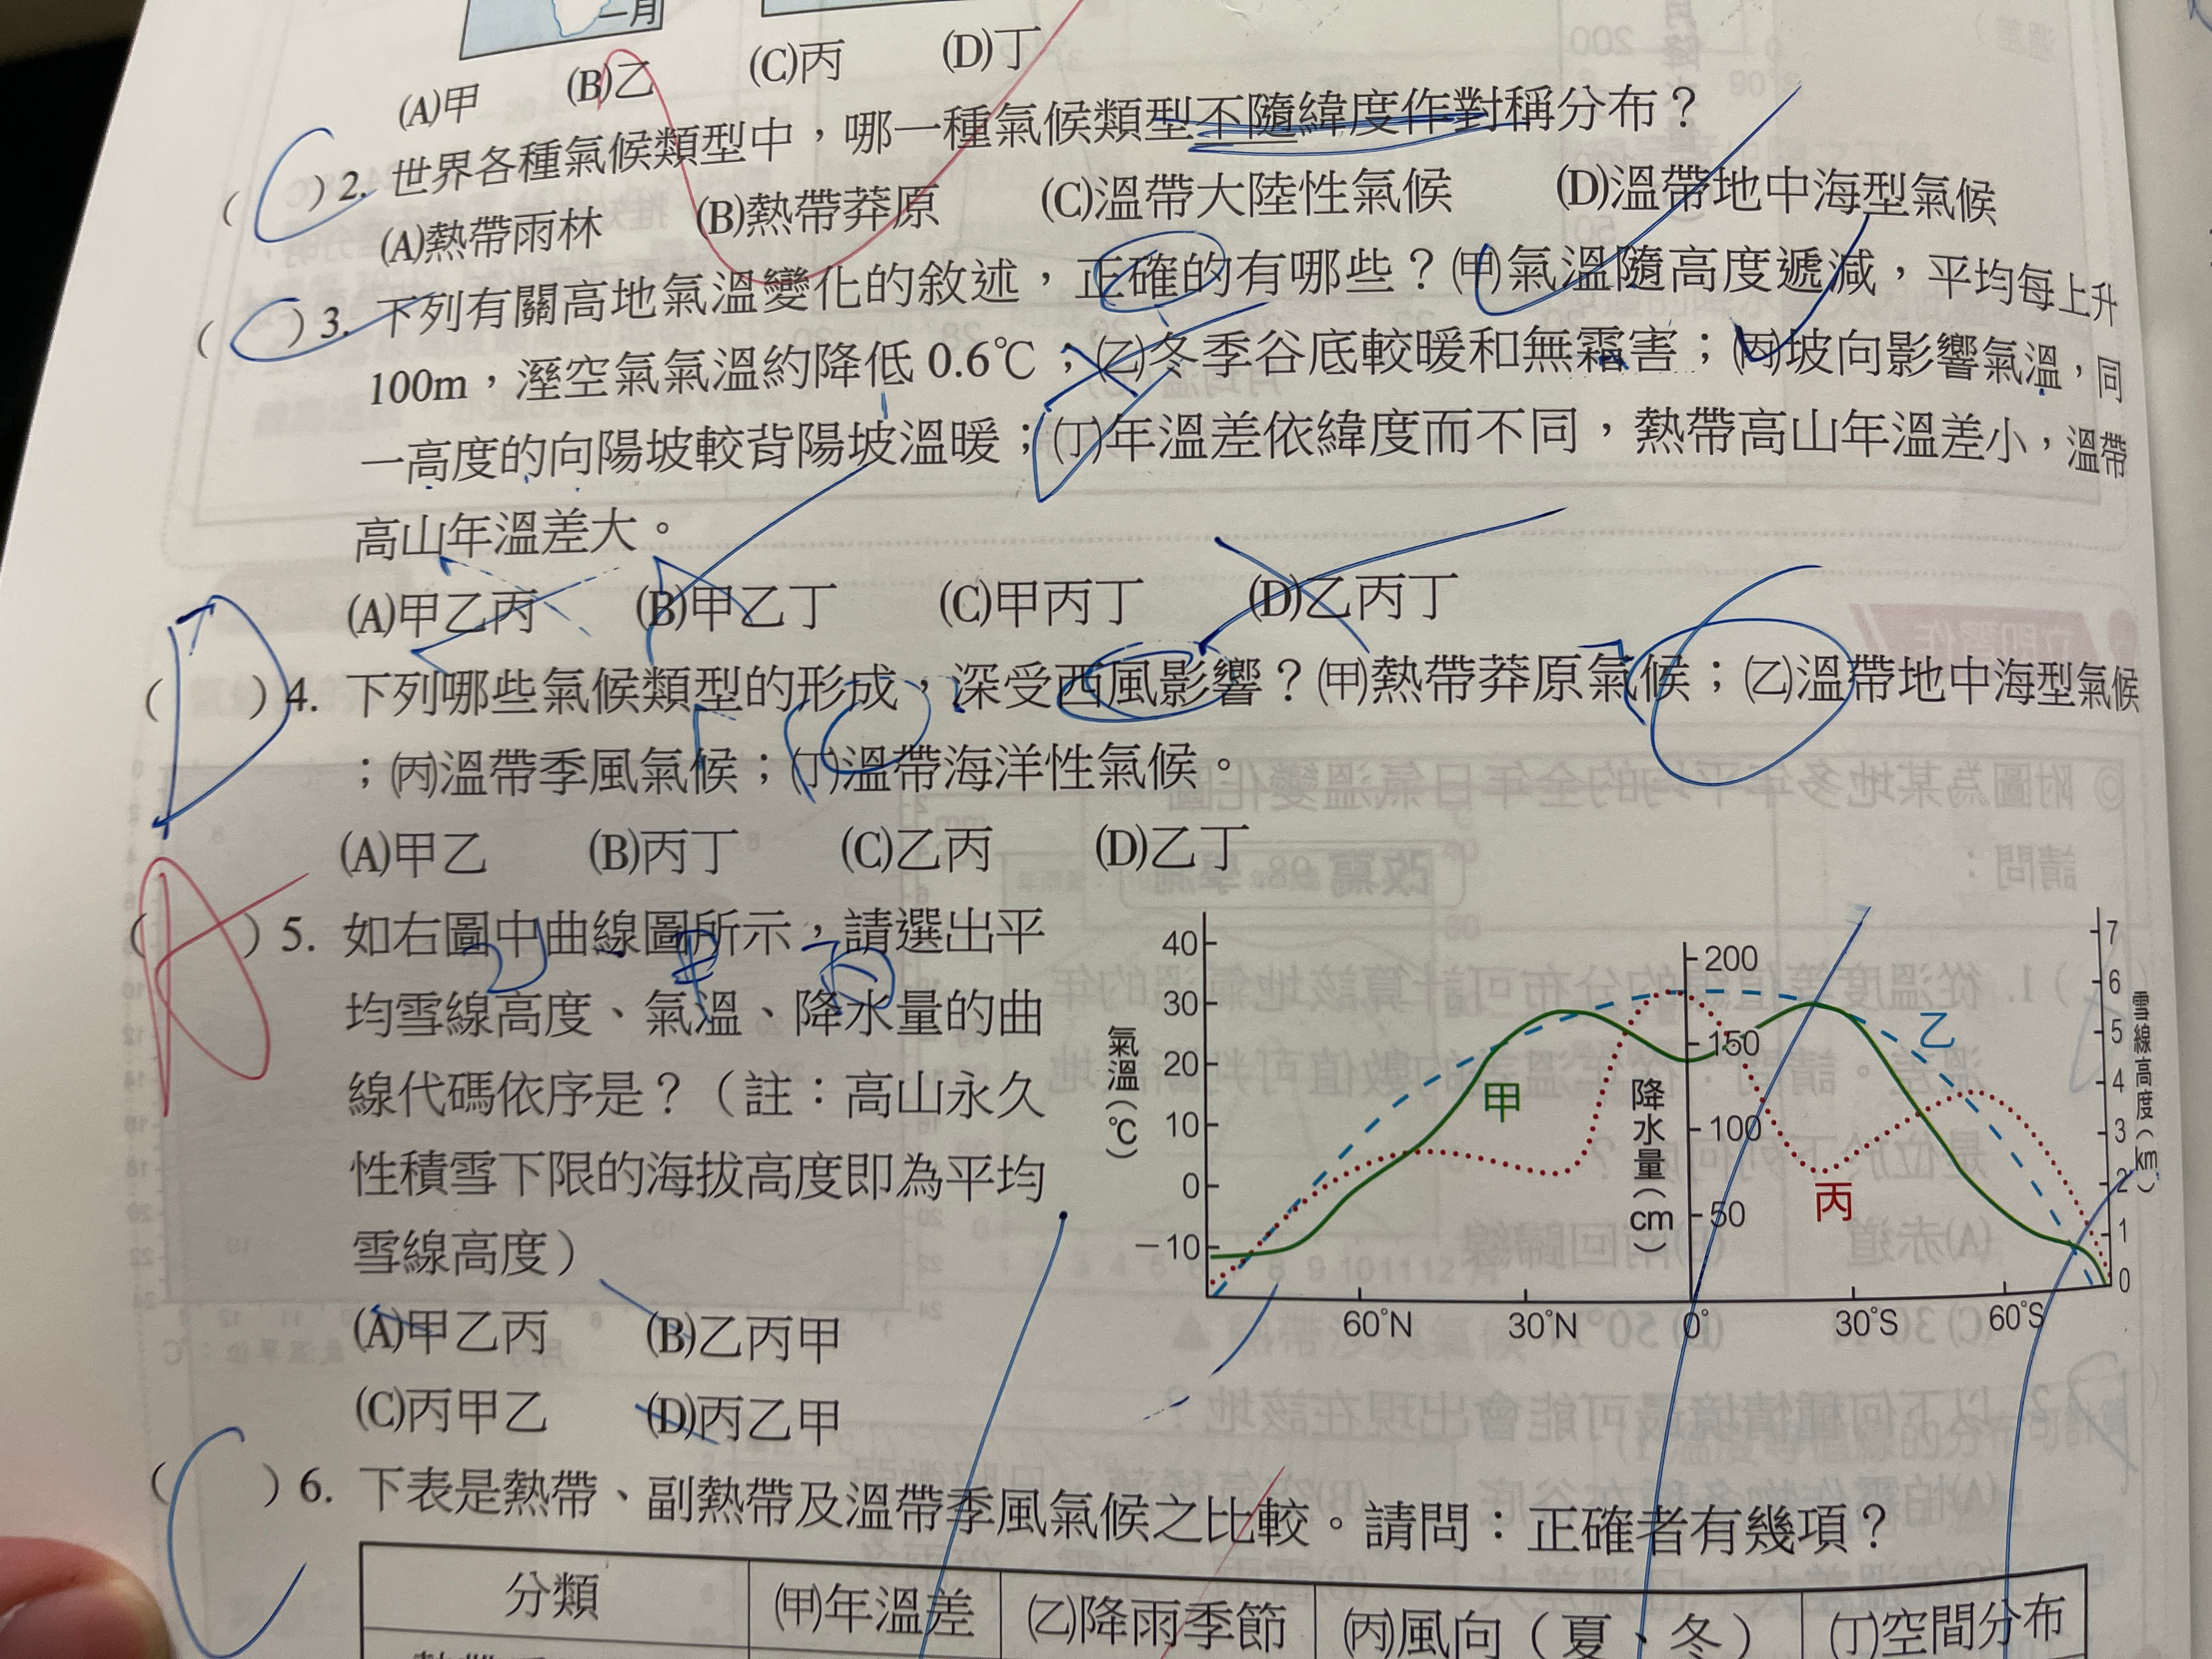 一月
(A)甲 (B)乙 (C)丙 (D)丁
( C )2. 世界各種氣候類型中，哪一種氣候類型不隨緯度作對稱分布？
(A)熱帶雨林 (B)熱帶莽原 (C)溫帶大陸性氣候 (D)溫帶地中海型氣候
( C )3. 下列有關高地氣溫變化的敘述，正確的有哪些？(甲)氣溫隨高度遞減，平均每上升
100m，溼空氣氣溫約降低 0.6℃；(乙)冬季谷底較暖和無霜害；(丙)坡向影響氣溫，同
一高度的向陽坡較背陽坡溫暖；(丁)年溫差依緯度而不同，熱帶高山年溫差小，溫帶
高山年溫差大。
(A)甲乙丙 (B)甲乙丁 (C)甲丙丁 (D)乙丙丁
( D )4. 下列哪些氣候類型的形成，深受西風影響？(甲)熱帶莽原氣候；(乙)溫帶地中海型氣候
；(丙)溫帶季風氣候；(丁)溫帶海洋性氣候。
(A)甲乙 (B)丙丁 (C)乙丙 (D)乙丁
( A )5. 如右圖中曲線圖所示，請選出平
均雪線高度、氣溫、降水量的曲
線代碼依序是？（註：高山永久
性積雪下限的海拔高度即為平均
雪線高度）
(A)甲乙丙 (B)乙丙甲
(C)丙甲乙 (D)丙乙甲
氣溫(℃)
40
30
20
10
0
−10
降水量(cm)
200
150
100
50
雪線高度(km)
7
6
5
4
3
2
1
0
甲
乙
丙
60°N 30°N 0° 30°S 60°S
( C )6. 下表是熱帶、副熱帶及溫帶季風氣候之比較。請問：正確者有幾項？
分類 (甲)年溫差 (乙)降雨季節 (丙)風向（夏、冬） (丁)空間分布